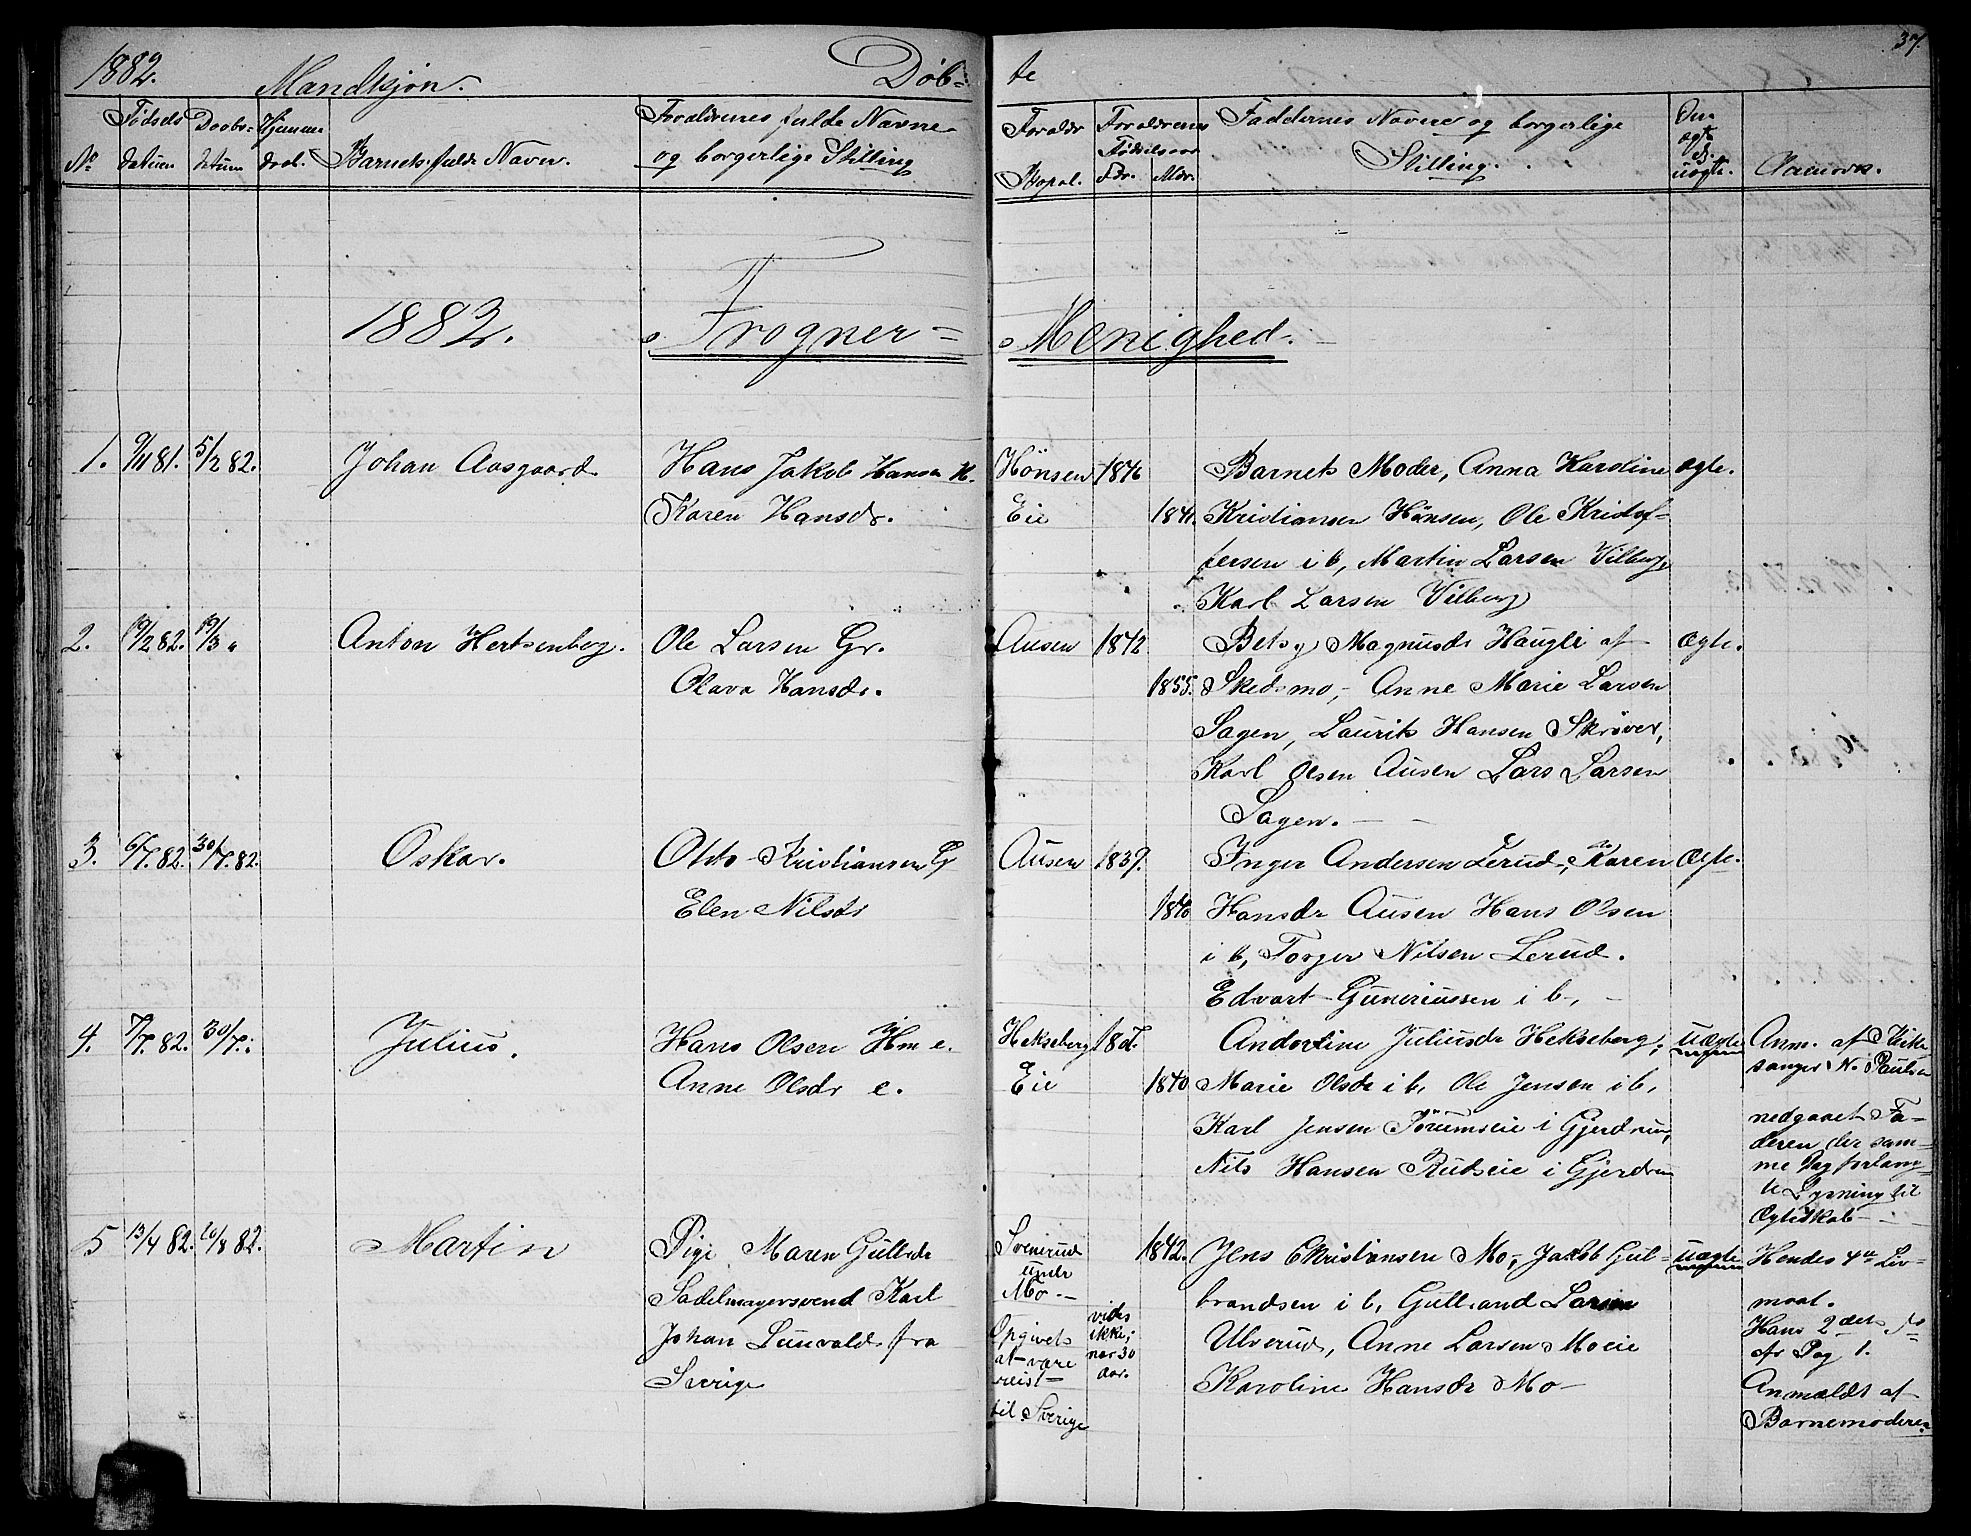 1882. Mandkjøn. Døb=
te 37.
No Fødsels datum Daabs- datum Hjemme daab. Barnets fulde Navn. Forældrenes fulde Navne og borgerlige Stilling
Forældr Bopæl. Forældrenes Fødselsaar Fdr. Mdr. Faddernes Navne og borgerlige Stilling. Om ægte el. uægte.
1882. Frogner=
Menighed.
1. 9/11 81. 5/2 82. Johan Aasgaard Hans Jakob Hansen H. Hönsen 1846 Barnets Moder, Anna Karoline ægte.
Karen Hansdr. Eie 1841. Kristiansen Hönsen, Ole Kristof-
fersen i b, Martin Larsen Vilberg
Karl Larsen Vilberg
2. 19/2 82. 19/3 " Anton Hertsenberg. Ole Larsen Gr. Ausen 1842 Betsy Magnusdr Haugli af Ægte.
Olava Hansdr. 1855. Skedsmo, Anne Marie Larsen
Sagen, Laurits Hansen Skröver,
Karl Olsen Ausen Lars Larsen
Sagen.
3. 6/7. 82. 30/7. 82. Oskar. Otto Kristiansen G Ausen 1837. Inger Andersen Lerud, Karen Ægte.
Elen Nilsdr 1840 Hansdr Ausen Hans Olsen
i b, Torger Nilsen Lerud.
Edvart Guneriussen i b,
4. 7/7. 82. 30/7. " Julius. Hans Olsen Hm e. Hekseberg Andorline Juliusdr Hekseberg, uægte Anm. af Kirke
Anne Olsdr e. Eie 1840 Marie Olsdr i b, Ole Jensen i b, sanger N. Paulsen
Karl Jensen Sörumseie i Gjerdrum, nedgaaet Fa-
Nils Hansen Rudseie i Gjerdrum deren der sam-
me Dag forlang-
te Lysning til
Ægteskab
5 13/4 82. 20/8 82. Martin Pige Maren Gulbrdr Svenrud 1842. Jens Christiansen Mo, Jakob Gul- uægte Hendes 4de Lei-
under
Sadelmagersvend Karl Mo brandsen i b, Gulbrand Larsen maal.
Johan Lunvald fra Opgivet at være reist vides ikke, nær 30 aar. Ulverud, Anne Larsen Moeie Hans 2det
Sverige til Sverige Karoline Hansdr Mo Anmeldt af
Barnemoderen